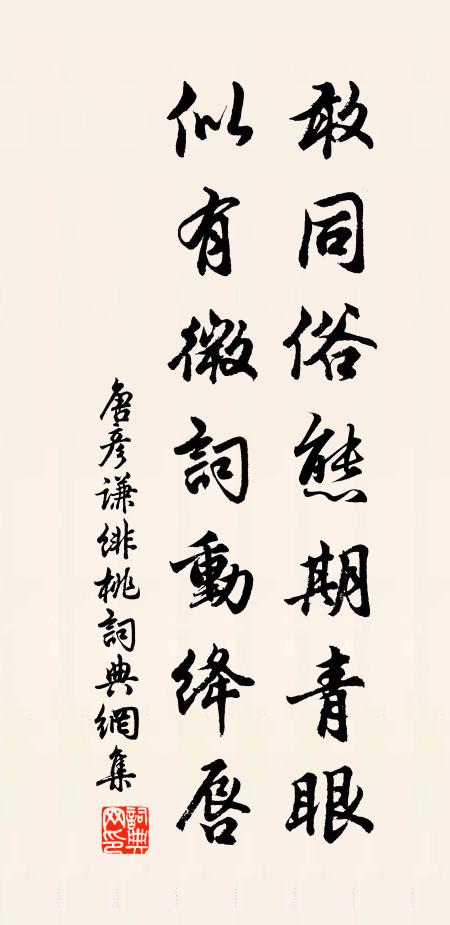 敢同俗態期青眼
似有微詞動絳唇
唐彥謙緋桃詞典網集
詞典網印